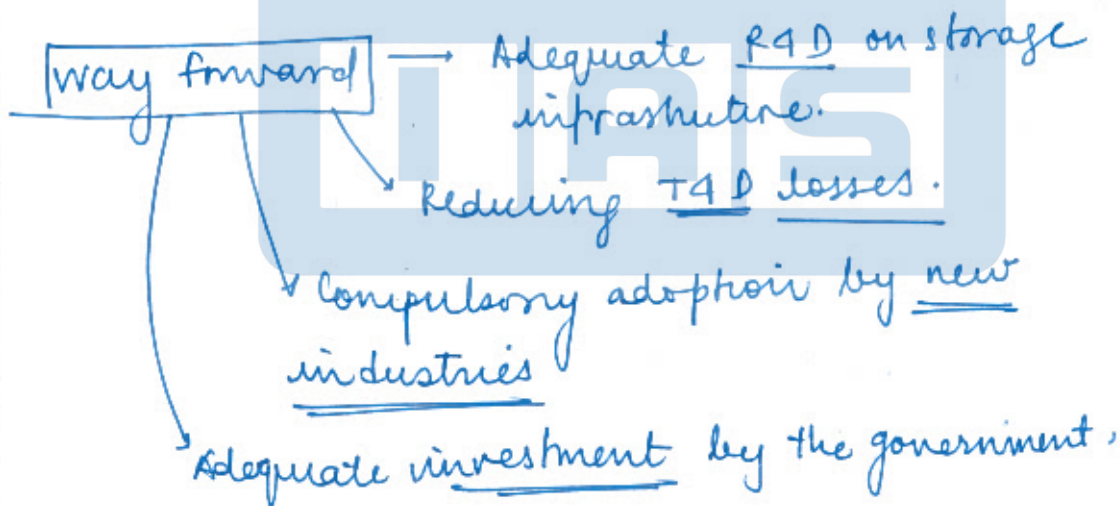 way forward → Adequate R&D on storage
infrastructure.
Reducing T&D losses.
Compulsory adoption by new
industries
Adequate investment by the government.
IAS